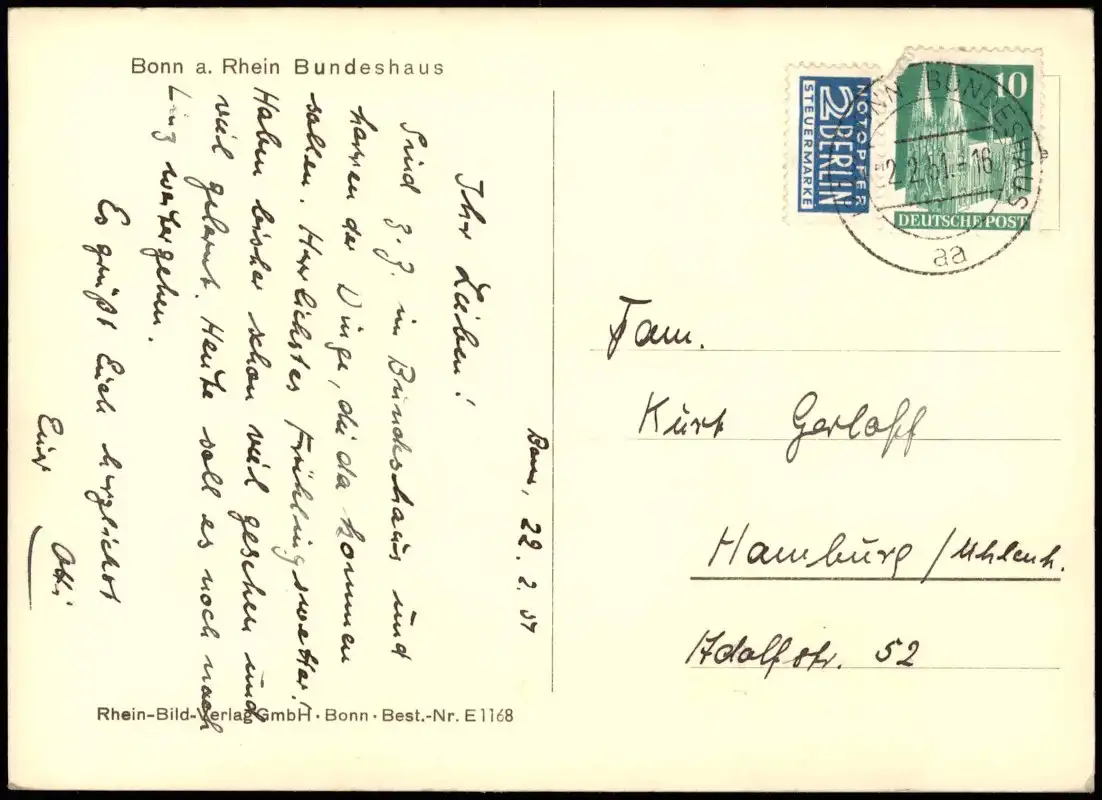 Bonn a. Rhein Bundeshaus
Bonn, 22. 2. 51
Ihr Lieben!
Sind z. Z. im Bundeshaus und
harren der Dinge, die da kommen
sollen. Herrlichstes Frühlingswetter!
Haben bisher schon viel gesehen und
viel gelernt. Heute soll es noch nach
Linz weitergehen.
Es grüßt Euch herzlichst
Euer
Otti
Rhein-Bild-Verlag GmbH · Bonn · Best.-Nr. E 1168
NOTOPFER
2 BERLIN
STEUERMARKE
10
DEUTSCHE POST
BONN BUNDESHAUS
2.2.51.-16
aa
Fam.
Kurt Gerloff
Hamburg / Uhlenh.
Adolfstr. 52